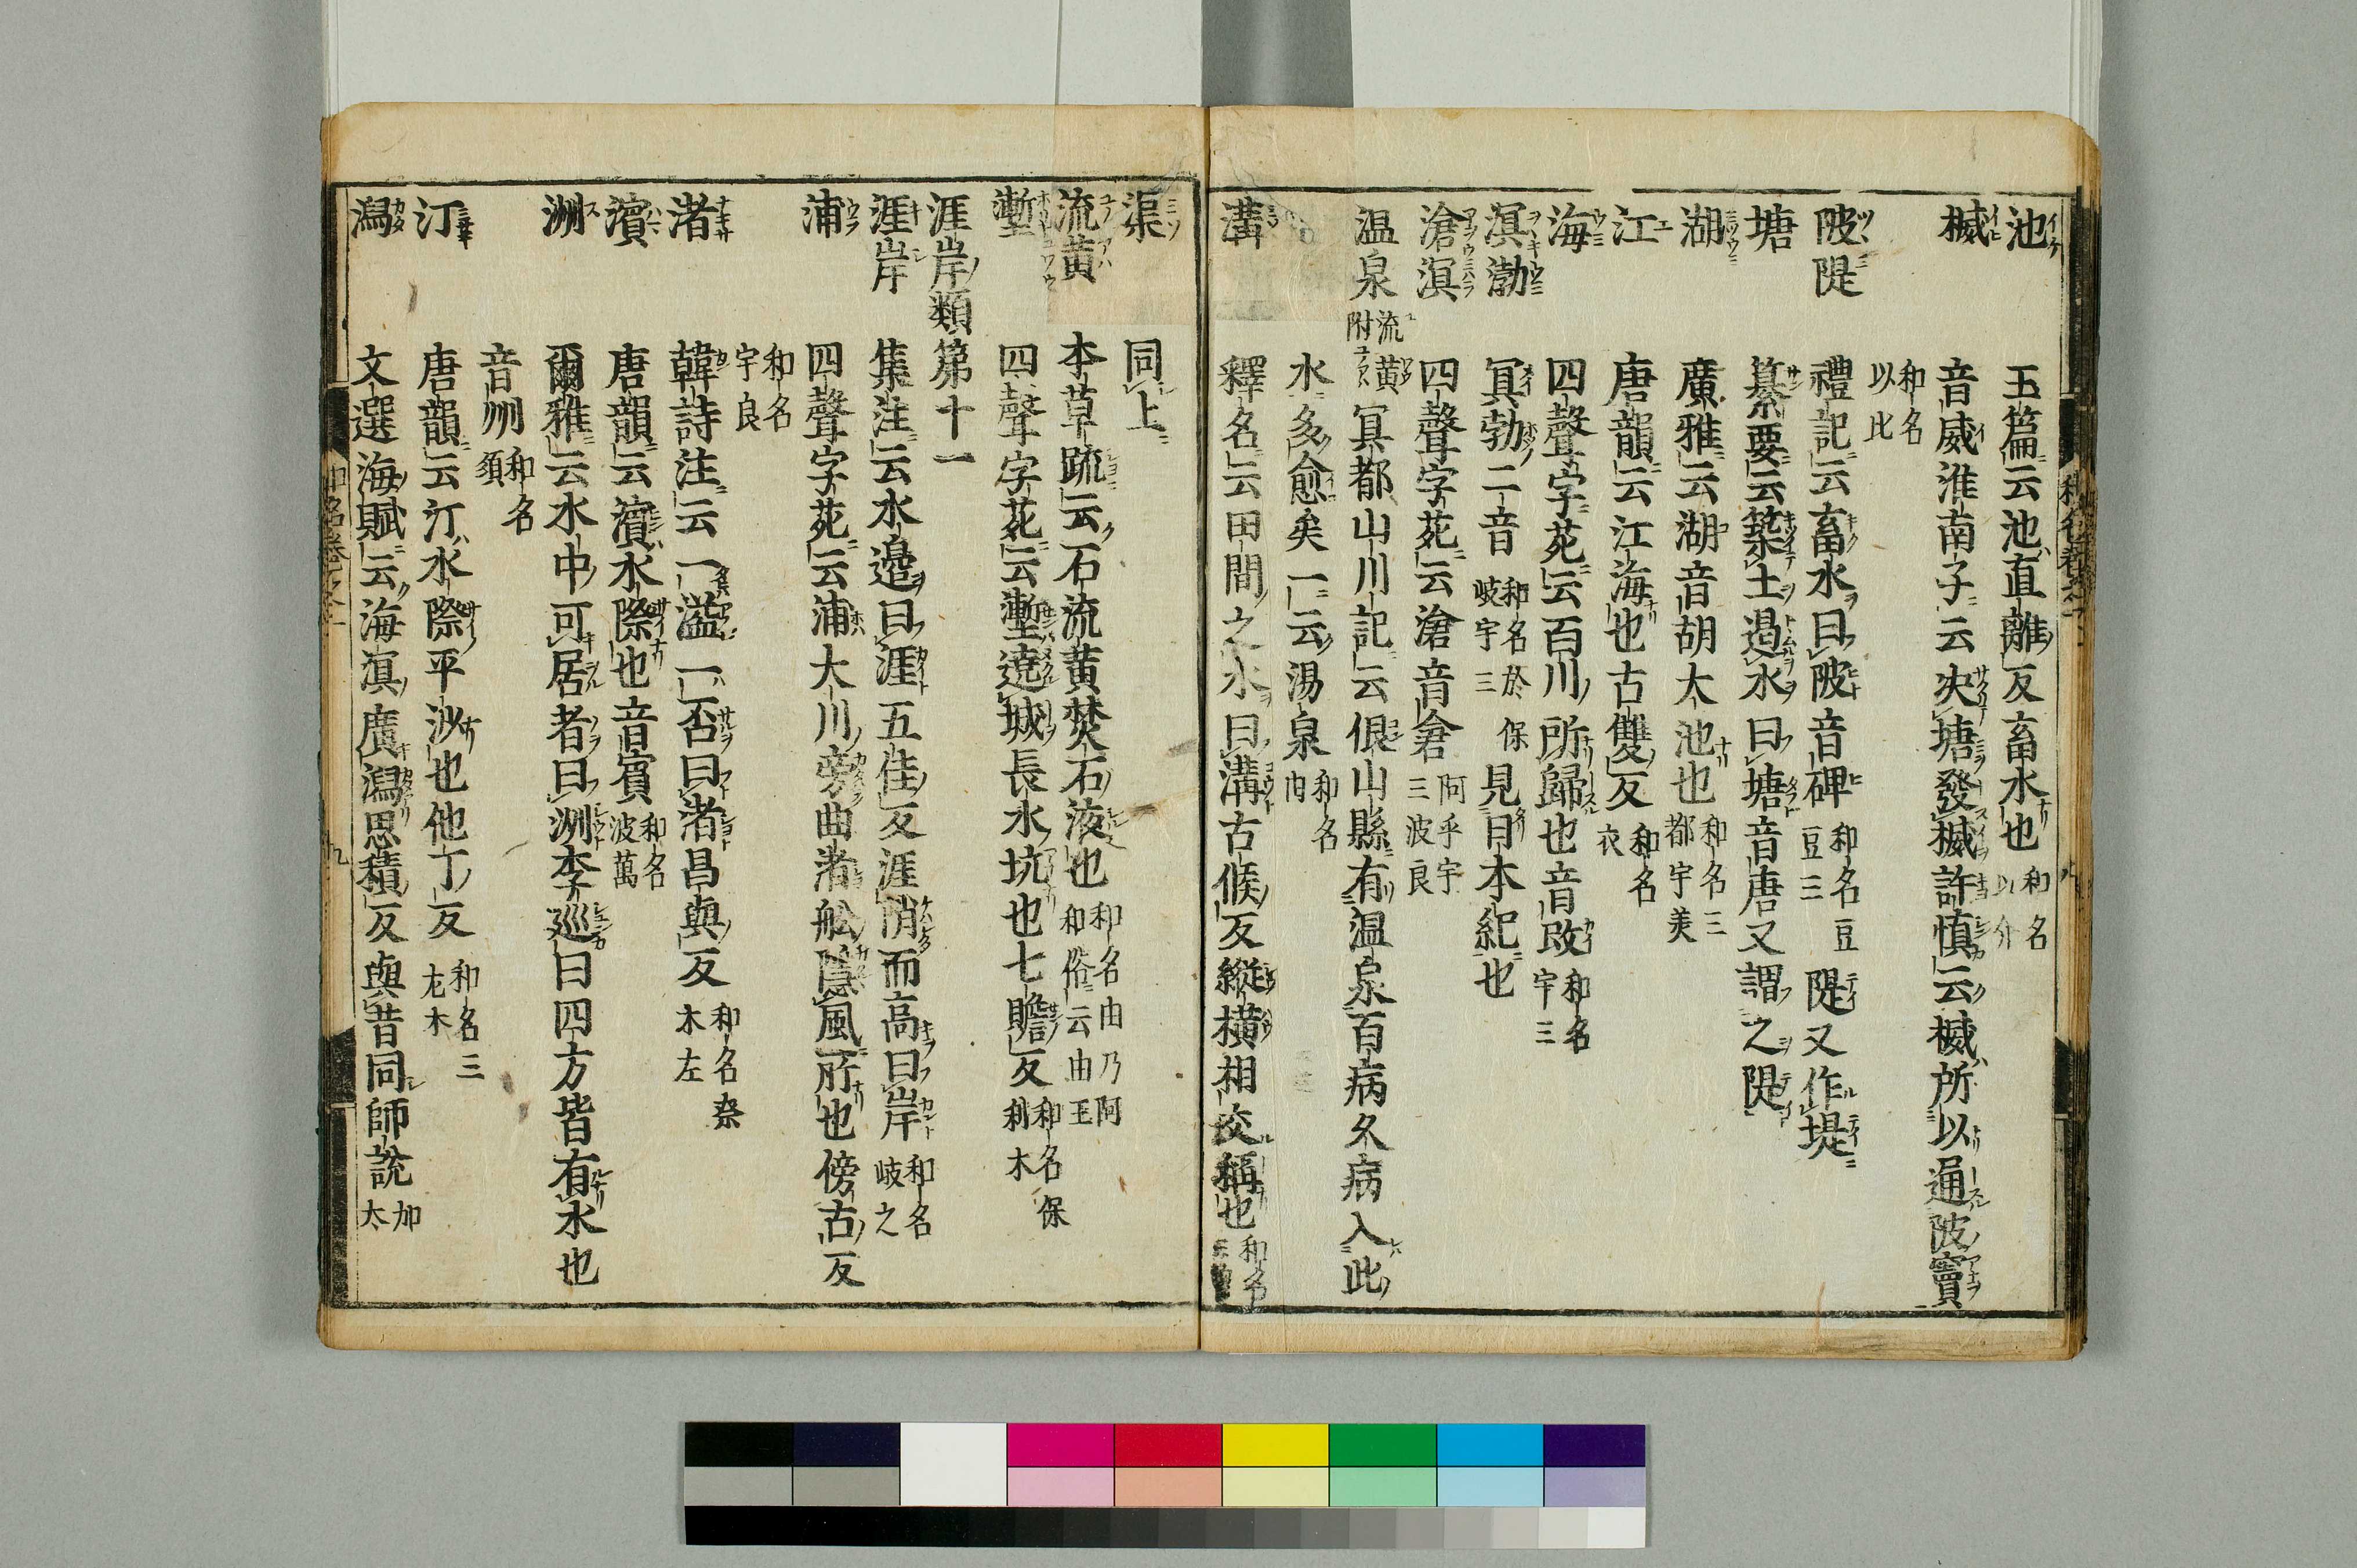 池 玉篇云池直離反畜水也和名以介
楲 音威淮南子云决塘發楲許慎云楲所以通陂竇
和名以比
陂隄 禮記云畜水曰陂音碑和名豆豆三隄又作堤
塘 纂要云築土遏水曰塘音唐又謂之隄
湖 廣雅云湖音胡大池也和名三都宇美
江 唐韻云江海也古雙反和名衣
海 四聲字苑云百川所歸也音改和名宇三
溟渤 冥勃二音和名於保岐宇三見日本紀也
滄溟 四聲字苑云滄音倉阿乎宇三波良
温泉流黄附 冥都山川記云佷山縣有温泉百病久病入此
水多愈矣一云湯泉和名由
溝 釋名云田間之水曰溝古候反縱横相交稱也和名
渠 同上
流黄 本草疏云石流黄焚石液也和名由乃阿和俗云由王
塹 四聲字苑云塹遶城長水坑也七贍反和名保利木
涯岸類第十一
涯岸 集注云水邉曰涯五佳反涯陗而高曰岸和名岐之
浦 四聲字苑云浦大川旁曲渚舩隱風所也傍古反
和名宇良
渚 韓詩注云一溢一否曰渚昌與反和名奈木左
濱 唐韻云濱水際也音賓和名波萬
洲 爾雅云水中可居者曰洲李巡曰四方皆有水也
音州和名須
汀 唐韻云汀水際平沙也他丁反和名三
潟 文選海賦云海溟廣潟思積反與昔同師説加太